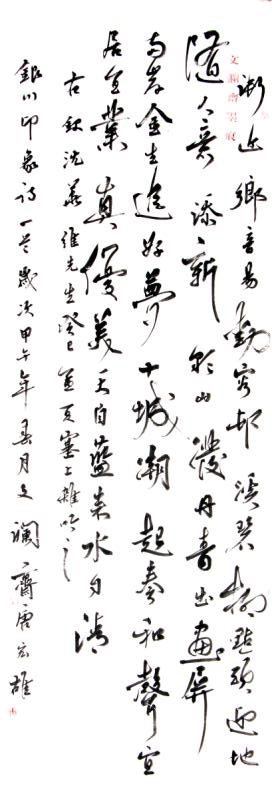 渐近鄉音易動容邨溪碧柳點頭迎地
隨人意添新彩山潑丹青出畫屏
两岸金生追好夢十城潮起奏和聲宜
居宜業真優美天自蓝来水自清
右録沈華維先生癸巳首夏塞上雜吟之
銀川印象詩一首歲次甲午年春月文瀾齋唐宏雄
文瀾齋墨痕